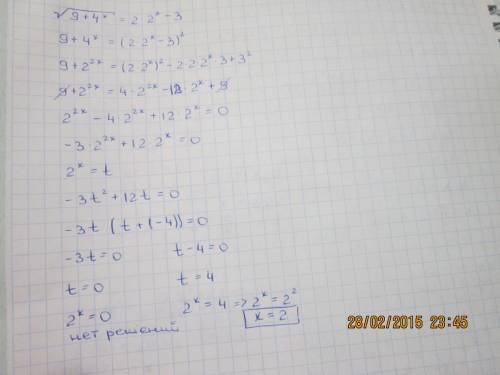 √9+4ˣ = 2·2ˣ-3
9+4ˣ = (2·2ˣ-3)²
9+2²ˣ = (2·2ˣ)²-2·2·2ˣ·3+3²
9+2²ˣ = 4·2²ˣ-12·2ˣ+9
2²ˣ-4·2²ˣ+12·2ˣ=0
-3·2²ˣ+12·2ˣ=0
2ˣ=t
-3t²+12t=0
-3t(t+(-4))=0
-3t=0 t-4=0
t=0 t=4
2ˣ=0 2ˣ=4 => 2ˣ=2²
нет решений x=2
28/02/2015 23:45